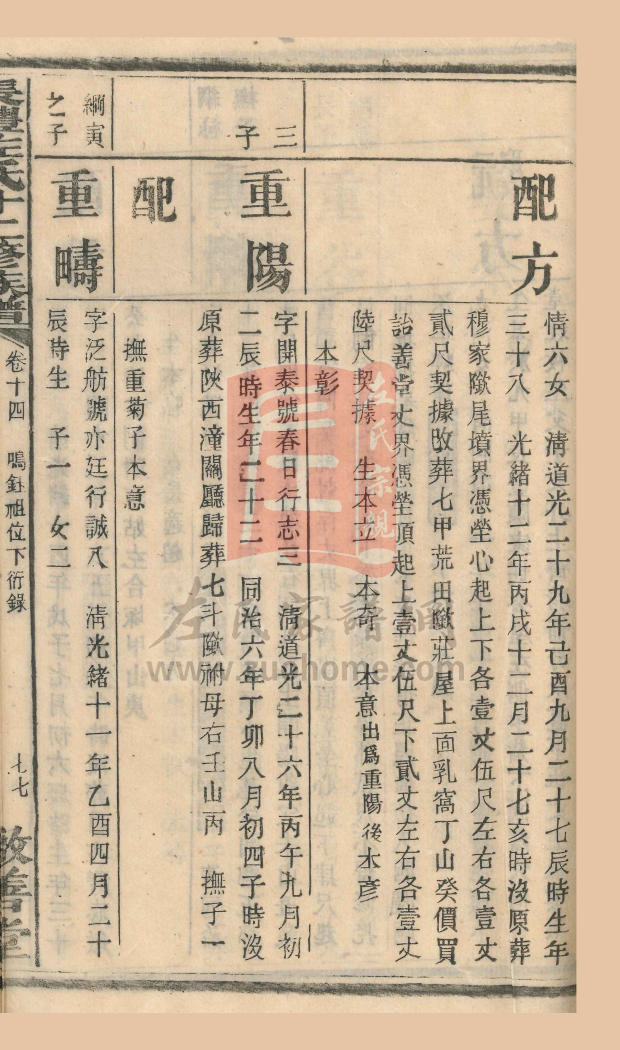 配方
情六女　淸道光二十九年己酉九月二十七辰時生年
三十八　光緒十二年丙戌十二月二十七亥時沒原葬
穆家歐尾墳界憑塋心起上下各壹丈伍尺左右各壹丈
貳尺契據改葬七甲荒田歐莊屋上面乳窩丁山癸價買
詒善堂丈界憑塋頂起上壹丈伍尺下貳丈左右各壹丈
陸尺契據　生本立　本奇　本意出爲重陽後本彥
本彰
三子
重陽
字開泰號春日行志三　淸道光二十六年丙午九月初
二辰時生年二十二　同治六年丁卯八月初四子時沒
原葬陝西潼關廳歸葬七斗歐祔母右壬山丙　撫子一
配
撫重菊子本意
綱寅之子
重疇
字泛舫號亦廷行誠八　淸光緒十一年乙酉四月二十
辰時生　子一　女二
長豐左氏十二修族譜　卷十四　鳴鈺祖位下衍錄　七七　敦善堂
左氏宗親
左氏家譜網
www.zuohome.com